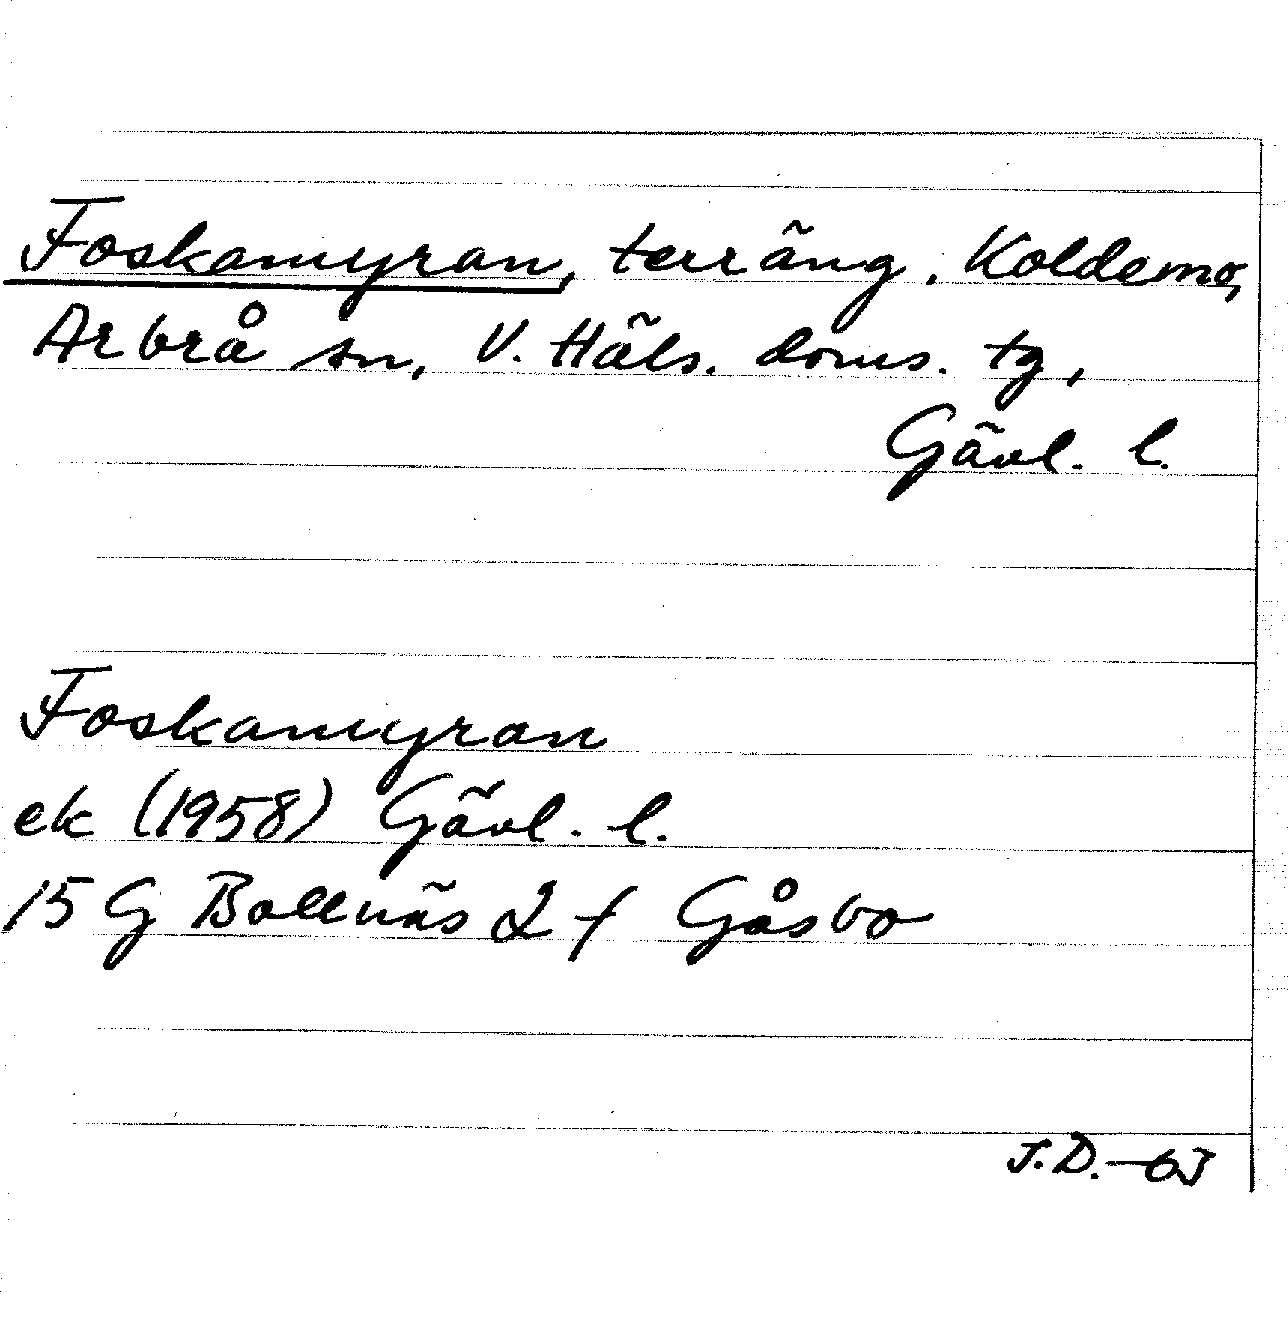 Foskamyran, terräng, Koldemo,
Arbrå sn, V. Häls. doms. tg,
Gävl. l.
Foskamyran
ek (1958) Gävl. l.
15 G Bollnäs 2 f Gåsbo
J.D.-63